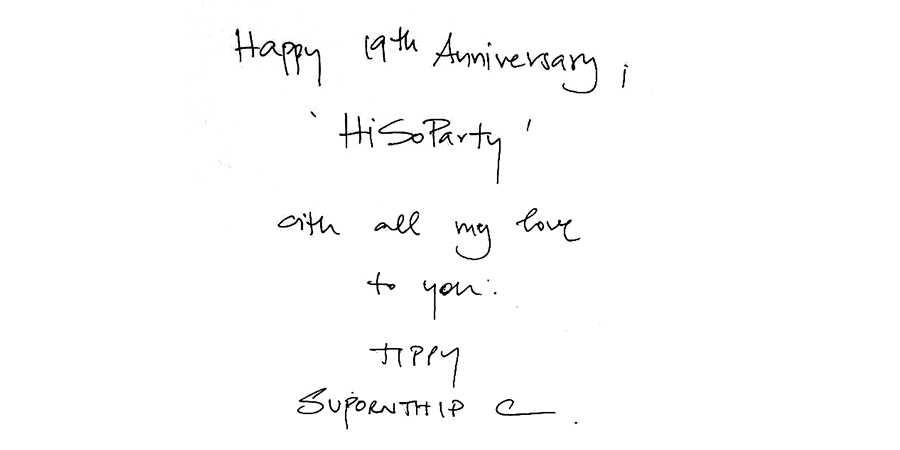 Happy 19th Anniversary ;
'HiSoParty'
with all my love
to you.
TIPPY
SUPORNTHIP C.